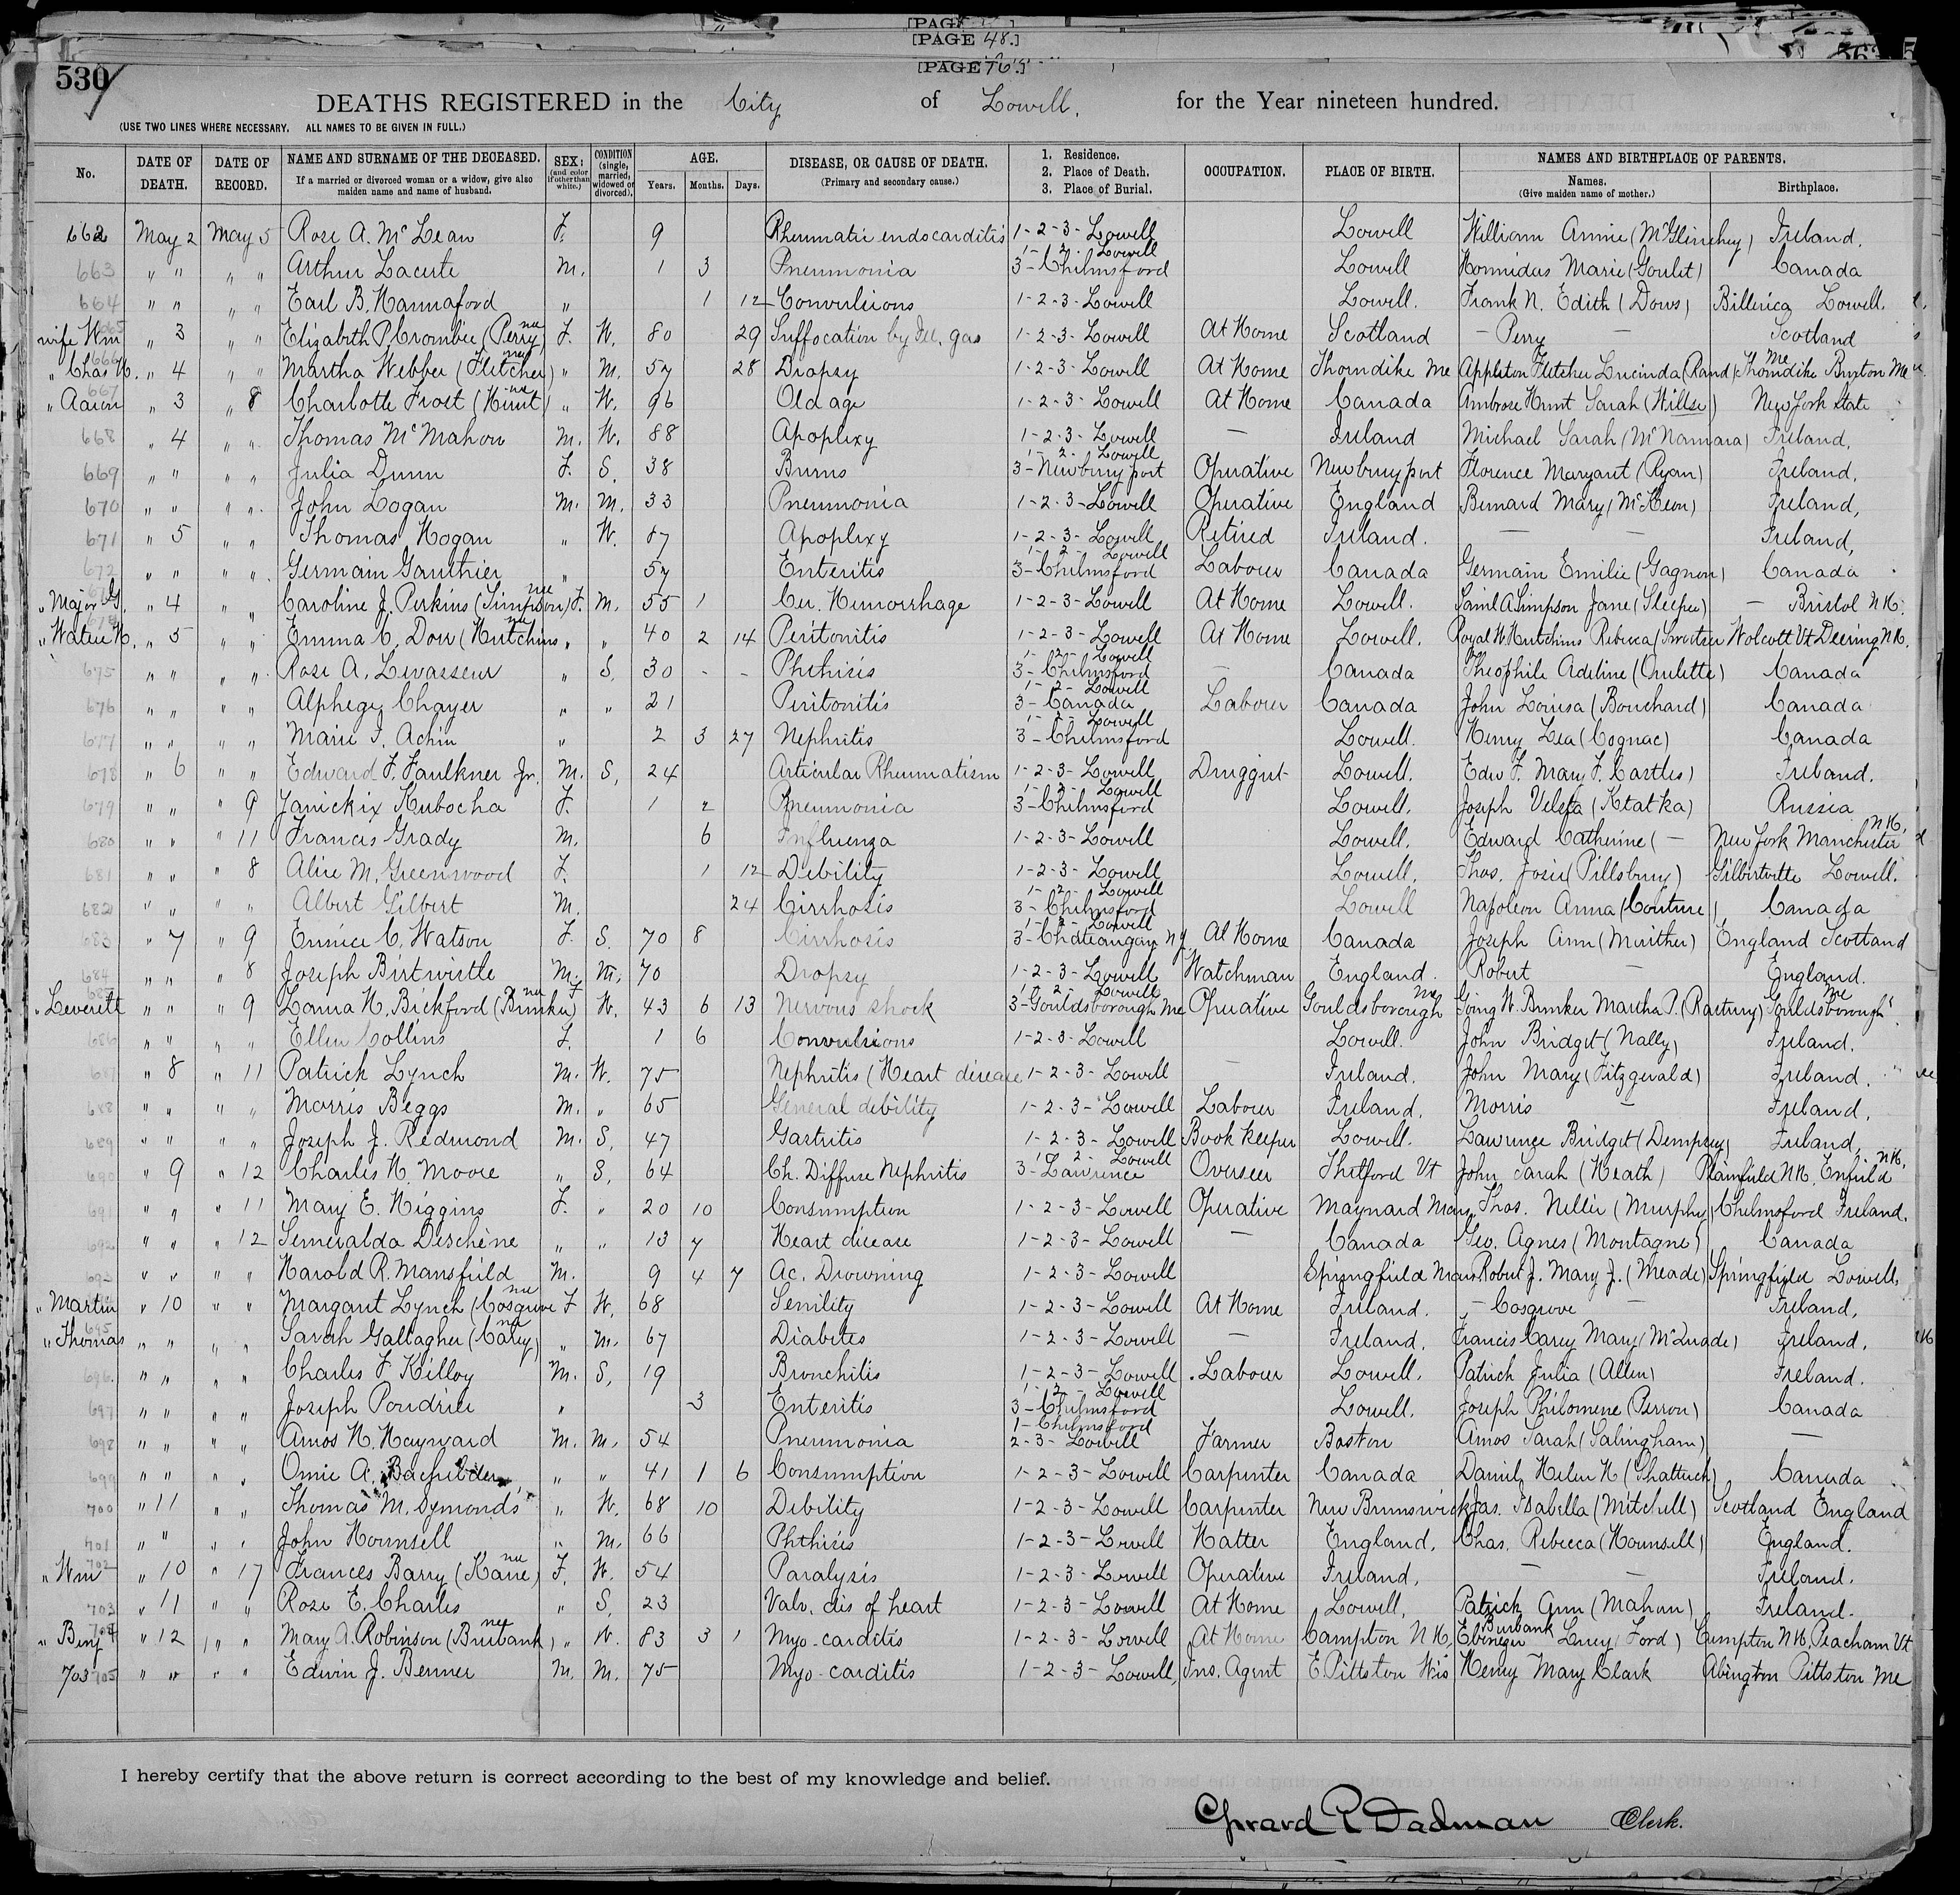 [PAGE
[PAGE 48.]
[PAGE 76.]
530
DEATHS REGISTERED in the City of Lowell. for the Year nineteen hundred.
(USE TWO LINES WHERE NECESSARY. ALL NAMES TO BE GIVEN IN FULL.)
No. DATE OF DEATH. DATE OF RECORD. NAME AND SURNAME OF THE DECEASED. If a married or divorced woman or a widow, give also maiden name and name of husband. SEX: (and color if other than white.) CONDITION (single, married, widowed or divorced). AGE. Years. Months. Days. DISEASE, OR CAUSE OF DEATH. (Primary and secondary cause.) 1. Residence. 2. Place of Death. 3. Place of Burial. OCCUPATION. PLACE OF BIRTH. NAMES AND BIRTHPLACE OF PARENTS. Names. (Give maiden name of mother.) Birthplace.
662 May 2 May 5 Rose A. McLean F. 9 Rheumatic endocarditis 1-2-3- Lowell Lowell William Annie (McGlinchey) Ireland.
663 " " " " Arthur Lacerte M. 1 3 Pneumonia 1-2- Lowell 3- Chelmsford Lowell Hormidas Marie (Goulet) Canada
664 " " " " Earl B. Hannaford " 1 12 Convulsions 1-2-3- Lowell Lowell. Frank N. Edith (Dows) Billerica Lowell.
665 wife Wm " 3 " " Elizabeth P. Crombie (nee Perry) F. W. 80 29 Suffocation by Ill. gas 1-2-3- Lowell At Home Scotland - Perry - Scotland
666 " Chas H. " 4 " " Martha Webber (nee Fletcher) " M. 57 28 Dropsy 1-2-3- Lowell At Home Thorndike Me Appleton Fletcher Lucinda (Rand) Thorndike Me Buxton Me
667 " Aaron " 3 " 8 Charlotte Frost (nee Hunt) " W. 96 Old age 1-2-3- Lowell At Home Canada Ambrose Hunt Sarah (Willse) New York State
668 " 4 " " Thomas McMahon M. W. 88 Apoplexy 1-2-3- Lowell - Ireland Michael Sarah (McNamara) Ireland.
669 " " " " Julia Dunn F. S. 38 Burns 1-2- Lowell 3- Newburyport Operative Newburyport Florence Margaret (Ryan) Ireland.
670 " " " " John Logan M. M. 33 Pneumonia 1-2-3- Lowell Operative England Bernard Mary (McKeon) Ireland,
671 " 5 " " Thomas Hogan " W. 67 Apoplexy 1-2-3- Lowell Retired Ireland. - - Ireland,
672 " " " " Germain Gauthier " 57 Enteritis 1-2- Lowell 3- Chelmsford Labour Canada Germain Emilie (Gagnon) Canada
" Major G. " 4 " " Caroline J. Perkins (nee Simpson) F. M. 55 1 Cer. Hemorrhage 1-2-3- Lowell At Home Lowell. Saml A Simpson Jane (Sleeper) - Bristol N.H.
" Walter H. " 5 " " Emma C. Dow (nee Hutchins " " 40 2 14 Peritonitis 1-2-3- Lowell At Home Lowell. Royal W Hutchins Rebecca Wolcott Vt Deering N.H.
675 " " " " Rose A. Levasseur " S. 30 - - Phthisis 1-2- Lowell 3- Chelmsford - Canada Theophile Adeline (Oulette) Canada
676 " " " " Alphege Chayer " " 21 Peritonitis 1-2- Lowell 3- Canada Labour Canada John Louisa (Bouchard) Canada
677 " " " " Marie F. Achin " 2 3 27 Nephritis 1-2- Lowell 3- Chelmsford Lowell. Henry Lea (Cognac) Canada
678 " 6 " " Edward F. Faulkner Jr. M. S. 24 Articular Rheumatism 1-2-3- Lowell Druggist Lowell. Edw F. Mary F. Castles) Ireland.
679 " " " 9 Janickix Kubocha F. 1 2 Pneumonia 1-2- Lowell 3- Chelmsford Lowell. Joseph (Ktatka) Russia
680 " " " 11 Francis Grady M. 6 Influenza 1-2-3- Lowell Lowell. Edward Catherine ( - New York Manchester N.H.
681 " " " 8 Alice M. Greenwood F. 1 12 Debility 1-2-3- Lowell Lowell. Thos. Josie (Pillsbury) Gilbertville Lowell.
682 " " " " Albert Gilbert M. 24 Cirrhosis 1-2- Lowell 3- Chelmsford Lowell Napoleon Anna (Couture) Canada
683 " 7 " 9 Eunice C. Watson F. S. 70 8 Cirrhosis 1-2- Lowell 3- Chateaugay N.Y. At Home Canada Joseph Ann (Muither) England Scotland
684 " " " 8 Joseph Birtwistle M. M. 70 Dropsy 1-2-3- Lowell Watchman England. Robert - England.
" Leverett " " " 9 Lanna H. Bickford (nee Bunker) F W. 43 6 13 Nervous shock 1-2- Lowell 3- Gouldsborough Me Operative Gouldsborough Me Going W. Bunker Martha P. Gouldsborough Me
686 " " " " Ellen Collins F. 1 6 Convulsions 1-2-3- Lowell Lowell. John Bridget (Nally) Ireland.
687 " 8 " 11 Patrick Lynch M. W. 75 Nephritis (Heart disease 1-2-3- Lowell - Ireland. John Mary (Fitzgerald) Ireland.
688 " " " " Morris Beggs M. " 65 General debility 1-2-3- Lowell Labour Ireland. Morris - Ireland.
689 " " " " Joseph J. Redmond M. S. 47 Gastritis 1-2-3- Lowell Book keeper Lowell. Lawrence Bridget (Dempsey) Ireland.
690 " 9 " 12 Charles H. Moore " S. 64 Ch. Diffuse Nephritis 1-2- Lowell 3- Lawrence Overseer Thetford Vt John Sarah (Heath) Plainfield N.H. Enfield N.H.
691 " " " 11 Mary E. Higgins F. " 20 10 Consumption 1-2-3- Lowell Operative Maynard Mass. Thos. Nellie (Murphy) Chelmsford Ireland.
692 " " " 12 Semeralda Deschene " " 13 7 Heart disease 1-2-3- Lowell - Canada Geo. Agnes (Montagne) Canada
693 " " " " Harold R. Mansfield M. 9 4 7 Ac. Drowning 1-2-3- Lowell Springfield Mass Robert J. Mary J. (Meade) Springfield Lowell.
" Martin " 10 " " Margaret Lynch (nee Cosgrove F W. 68 Senility 1-2-3- Lowell At Home Ireland. - Cosgrove - Ireland.
695 " Thomas " " " " Sarah Gallagher (nee Carey) " M. 67 Diabetes 1-2-3- Lowell - Ireland. Francis Carey Mary (McQuade) Ireland.
696 " " " " Charles F. Killoy M. S. 19 Bronchitis 1-2-3- Lowell Labour Lowell. Patrick Julia (Allen) Ireland.
697 " " " " Joseph Poudrier " 3 Enteritis 1-2- Lowell 3- Chelmsford Lowell. Joseph Philomene (Perron) Canada
698 " " " " Amos H. Hayward M. M. 54 Pneumonia 1- Chelmsford 2-3- Lowell Farmer Boston Amos Sarah (Salingham) -
699 " " " " Omie A. Bachilder " " 41 1 6 Consumption 1-2-3- Lowell Carpenter Canada Daniel Helen H (Shattuck) Canada
700 " 11 " " Thomas M. Symonds " W. 68 10 Debility 1-2-3- Lowell Carpenter New Brunswick Jas. Isabella (Mitchell) Scotland England
701 " " " " John Hounsell " M. 66 Phthisis 1-2-3- Lowell Hatter England. Chas. Rebecca (Hounsell) England.
702 " Wm " 10 " 17 Frances Barry (nee Kane) F. W. 54 Paralysis 1-2-3- Lowell Operative Ireland. - Ireland.
703 " 11 " " Rose E. Charles " S. 23 Valv. dis of heart 1-2-3- Lowell At Home Lowell. Patrick Ann (Mahan) Ireland.
704 " Benj " 12 " " Mary A. Robinson (nee Burbank) " W. 83 3 1 Myo-carditis 1-2-3- Lowell At Home Campton N.H. Ebenezer Burbank Lucy (Ford) Campton N.H. Peacham Vt
703 705 " " " " Edwin J. Benner M. M. 75 Myo-carditis 1-2-3- Lowell, Ins. Agent E. Pittston Wis Henry Mary Clark Abington Pittston Me
I hereby certify that the above return is correct according to the best of my knowledge and belief.
Girard P. Dadman Clerk.